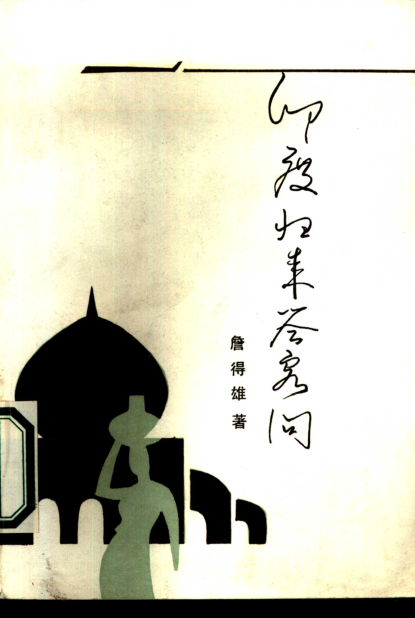 印度归来答客问
詹得雄著